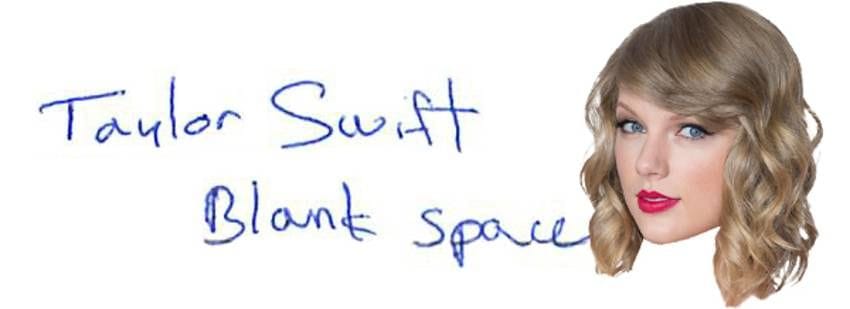 Taylor Swift
Blank space